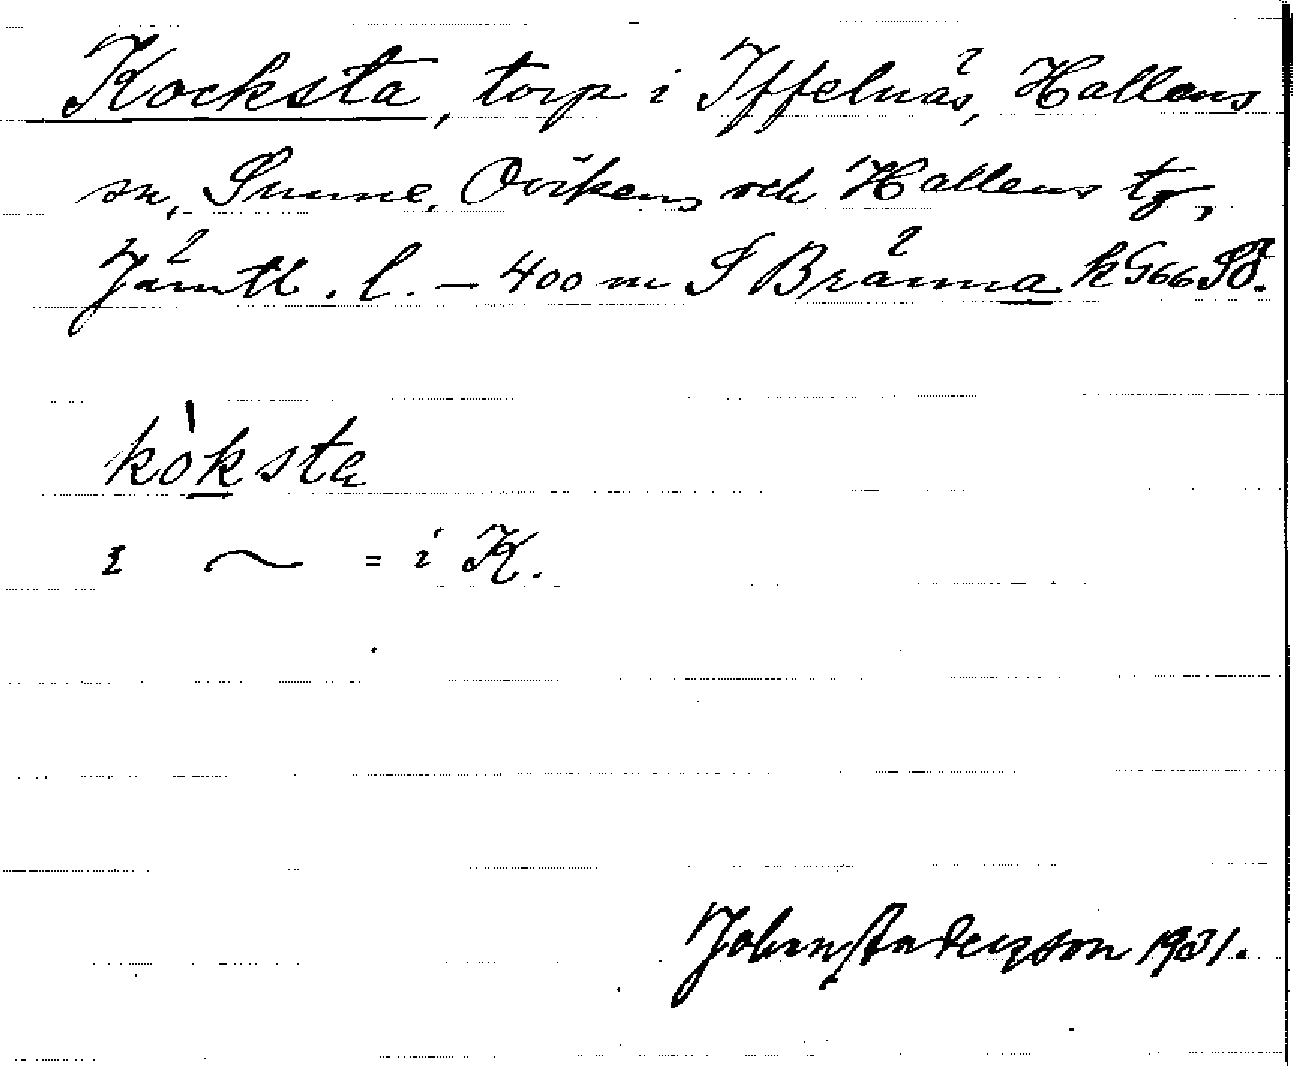 Kocksta, torp i Yffelnäs, Hallens
sn, Sunne, Ovikens och Hallens tg,
Jämtl. l. – 400 m S Bränna k G66 SO.
kòksta
ɪ ~ = i K.
Johan Anderzson 1931.